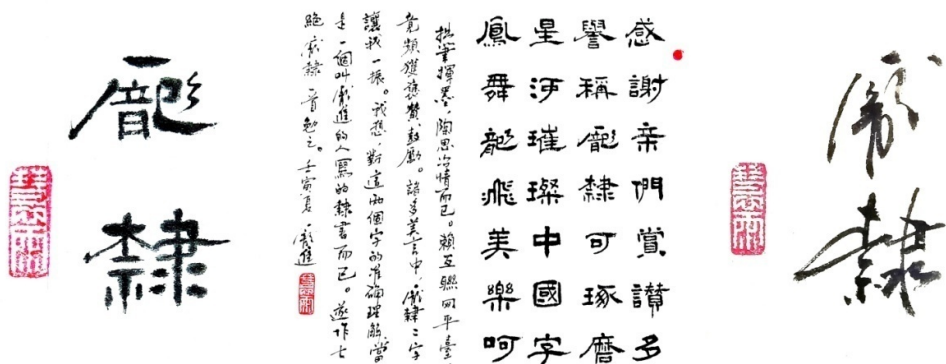 龐隸
感謝亲們賞讃多
譽稱龐隸可琢磨
星河璀璨中國字
鳳舞龍飛美樂呵
拙筆揮墨，陶思冶情而已。賴互聯网平臺
竟頻獲贊、鼓勵。諸多美言中，龐隸二字
讓我一振。我想，對這两個字的准确理解當
是一個叫龐進的人寫的隸書而已。遂作七
絶龐隸一首勉之。壬寅夏 龐進
龐隸